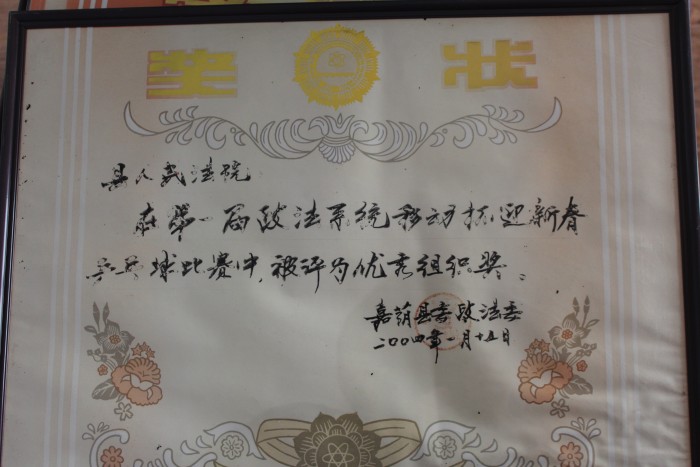 奖 状
县人民法院
在第一届政法系统移动杯迎新春
乒乓球比赛中,被评为优秀组织奖。
嘉荫县委政法委
二00四年一月十五日